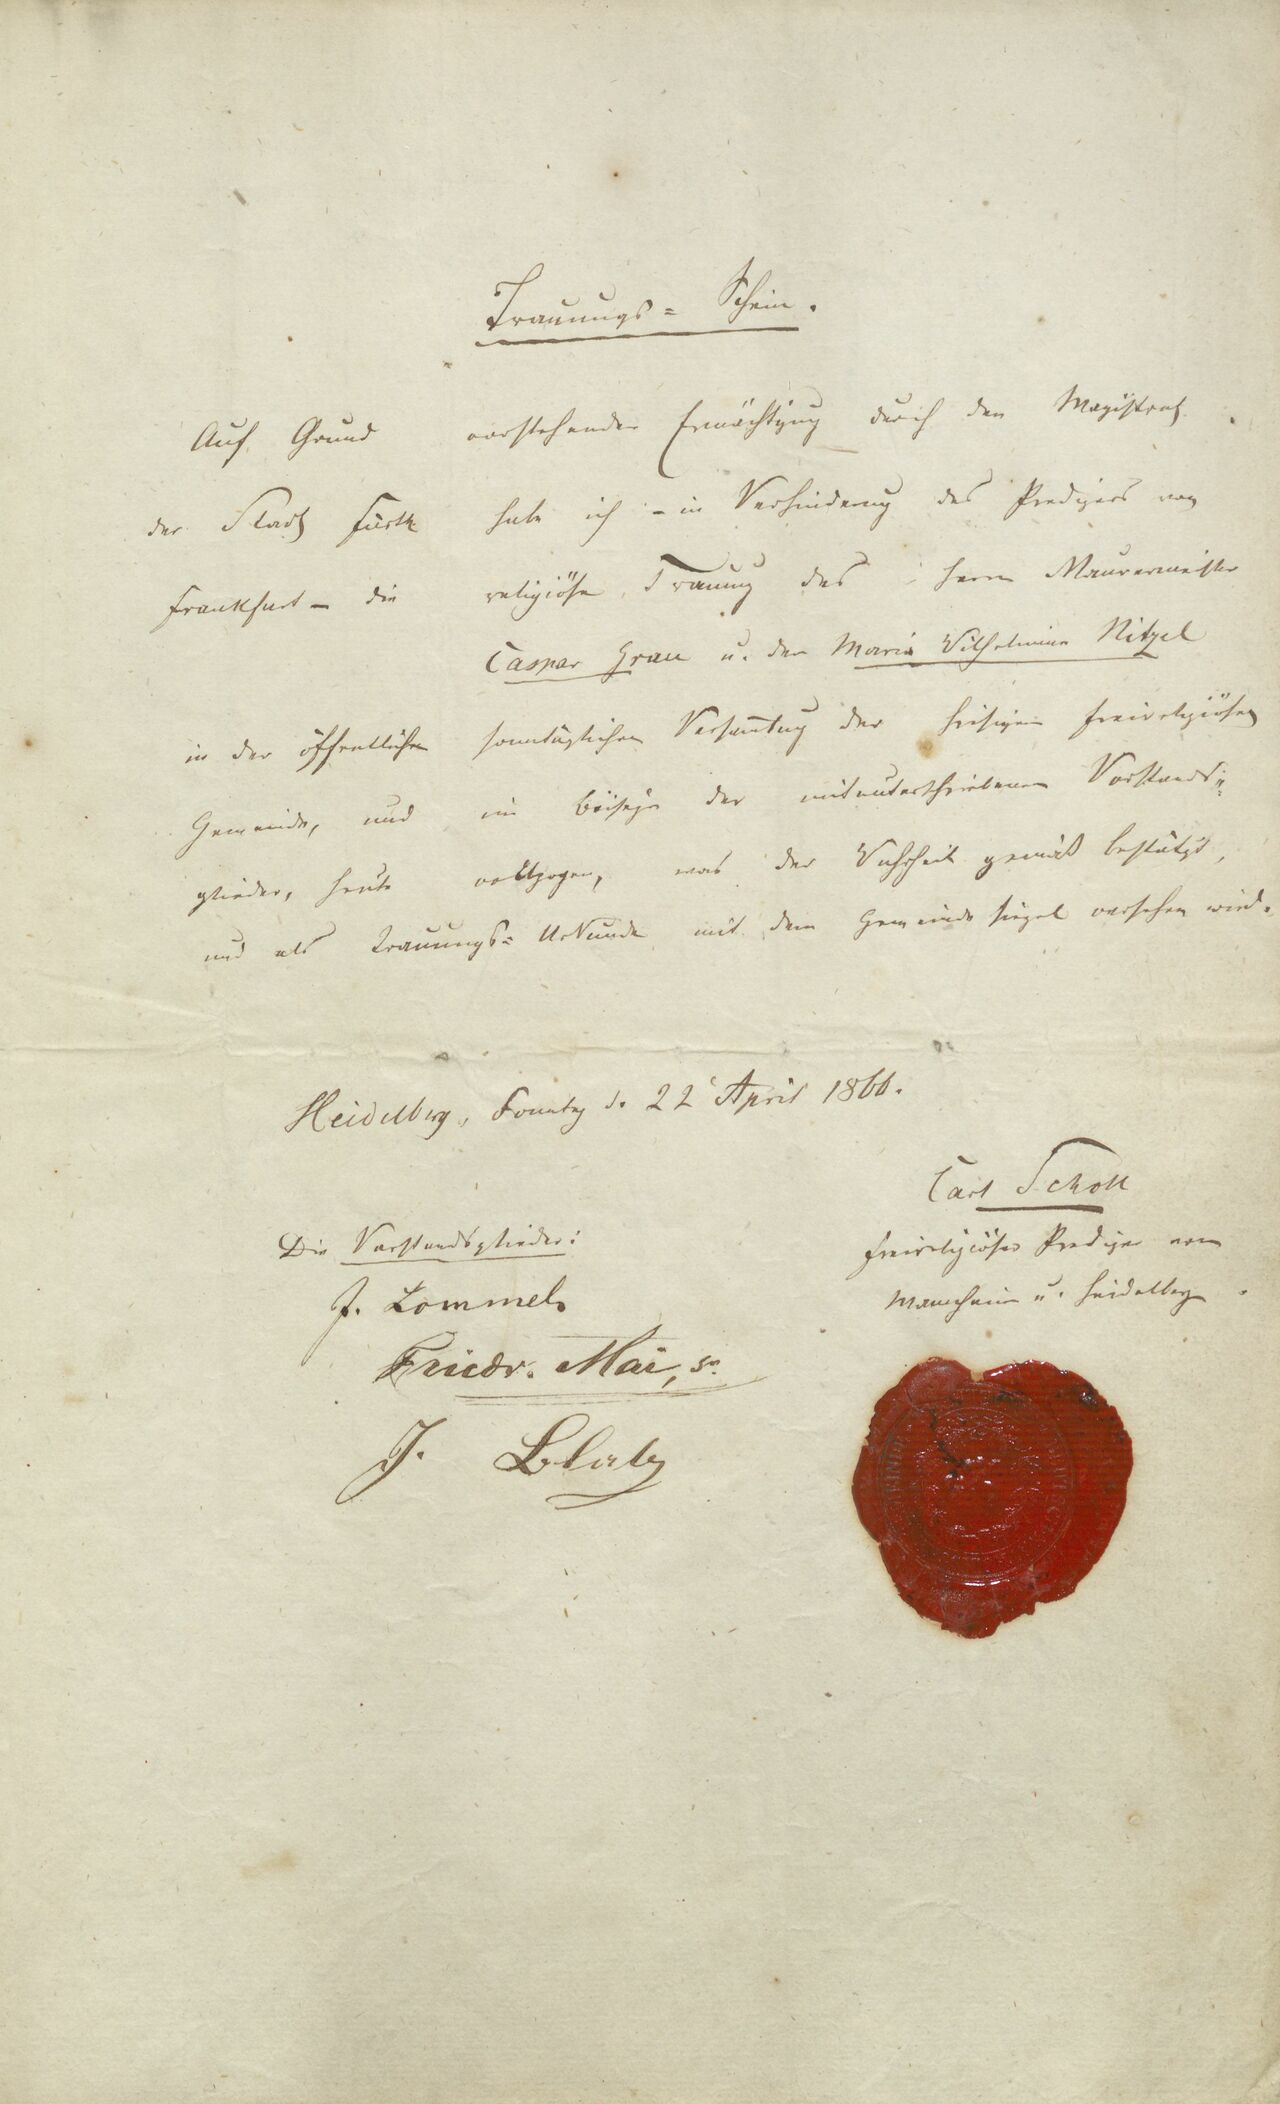 Trauungs= Schein.
Auf Grund vorstehender Ermächtigung durch den Magistrat
der Stadt Fürth habe ich - in Verhinderung des Predigers von
Frankfurt - die religiöse Trauung des Herrn Maurermeister
Caspar Grau u. der Maria Wilhelmine Nitzel
in der öffentlichen sonntäglichen Versamlung der hiesigen freireligiösen
Gemeinde, und im Beisein der mitunterschriebenen Vorstands=
glieder, heute vollzogen, was der Wahrheit gemäß bestätigt,
und als Trauungs= Urkunde mit dem Gemeindesiegel versehen wird.
Heidelberg, Sonntag d. 22 April 1866.
Carl Scholl
freireligiöser Prediger von
Mannheim u. Heidelberg.
Die Vorstandsglieder:
J. Lommel
Friedr. Mai, sr.
J.